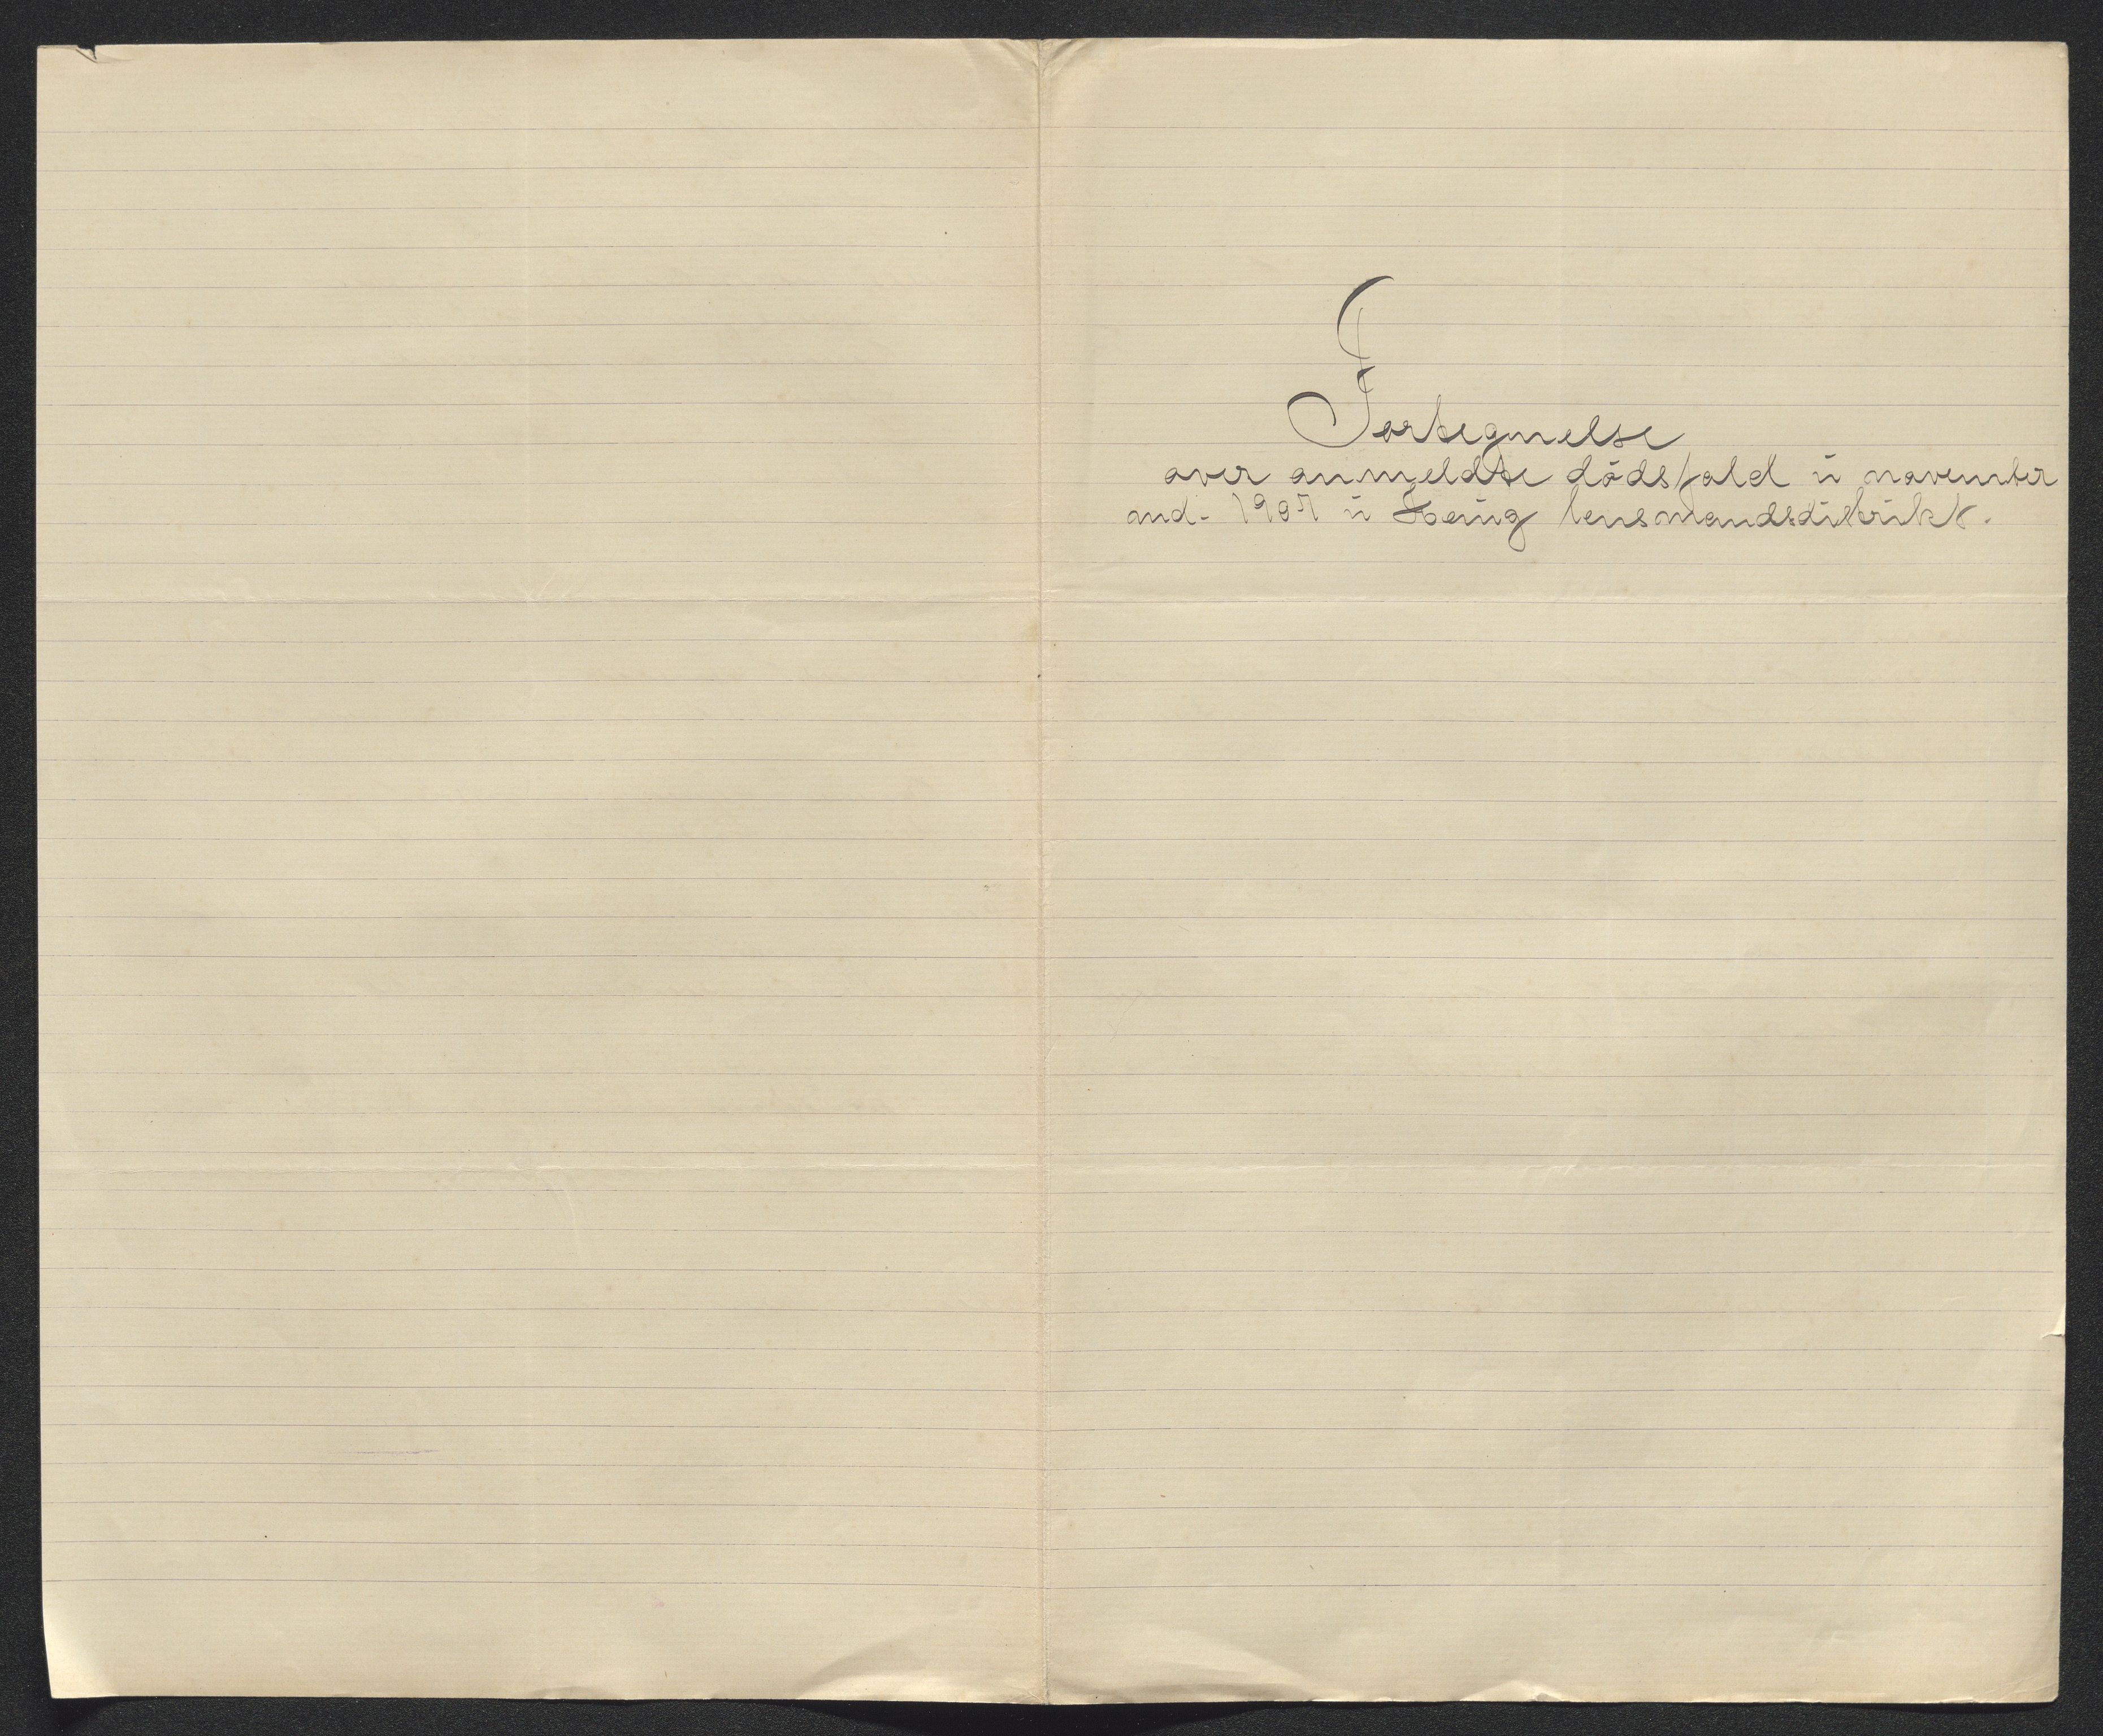 Fortegnelse
over anmeldte dødsfald i november
md. 1907 i lensmandsdistrikt.